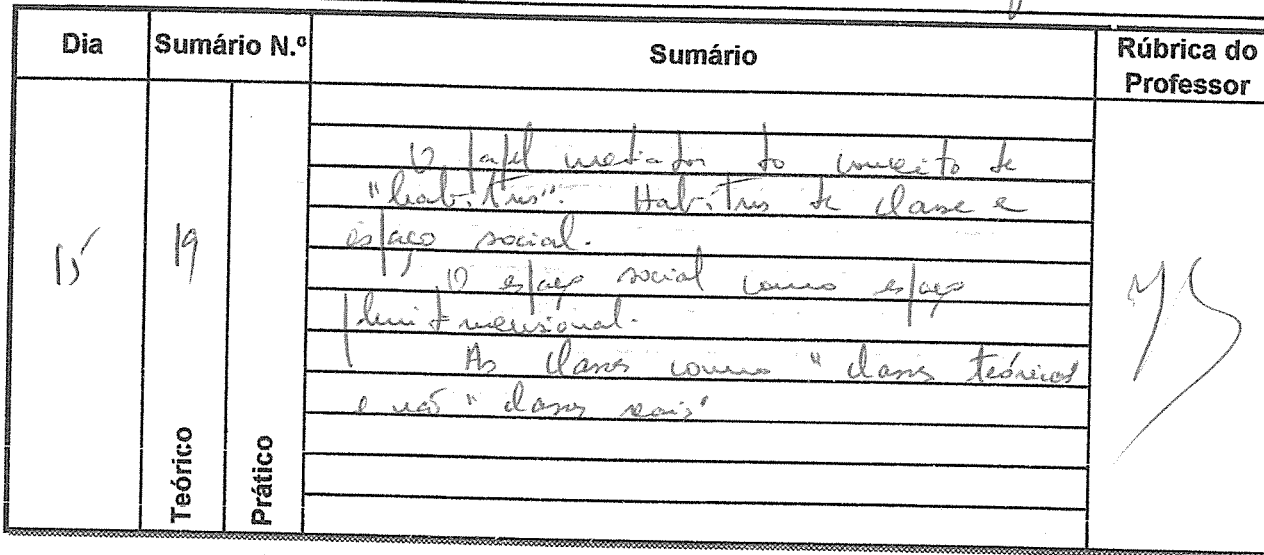 Dia Sumário N.º Sumário Rúbrica do Professor
15 19
O papel mediador do conceito de
"habitus". Habitus de classe e
espaço social.
O espaço social como espaço
pluridimensional.
As classes como "classes teóricas"
e não "classes reais"
Teórico Prático